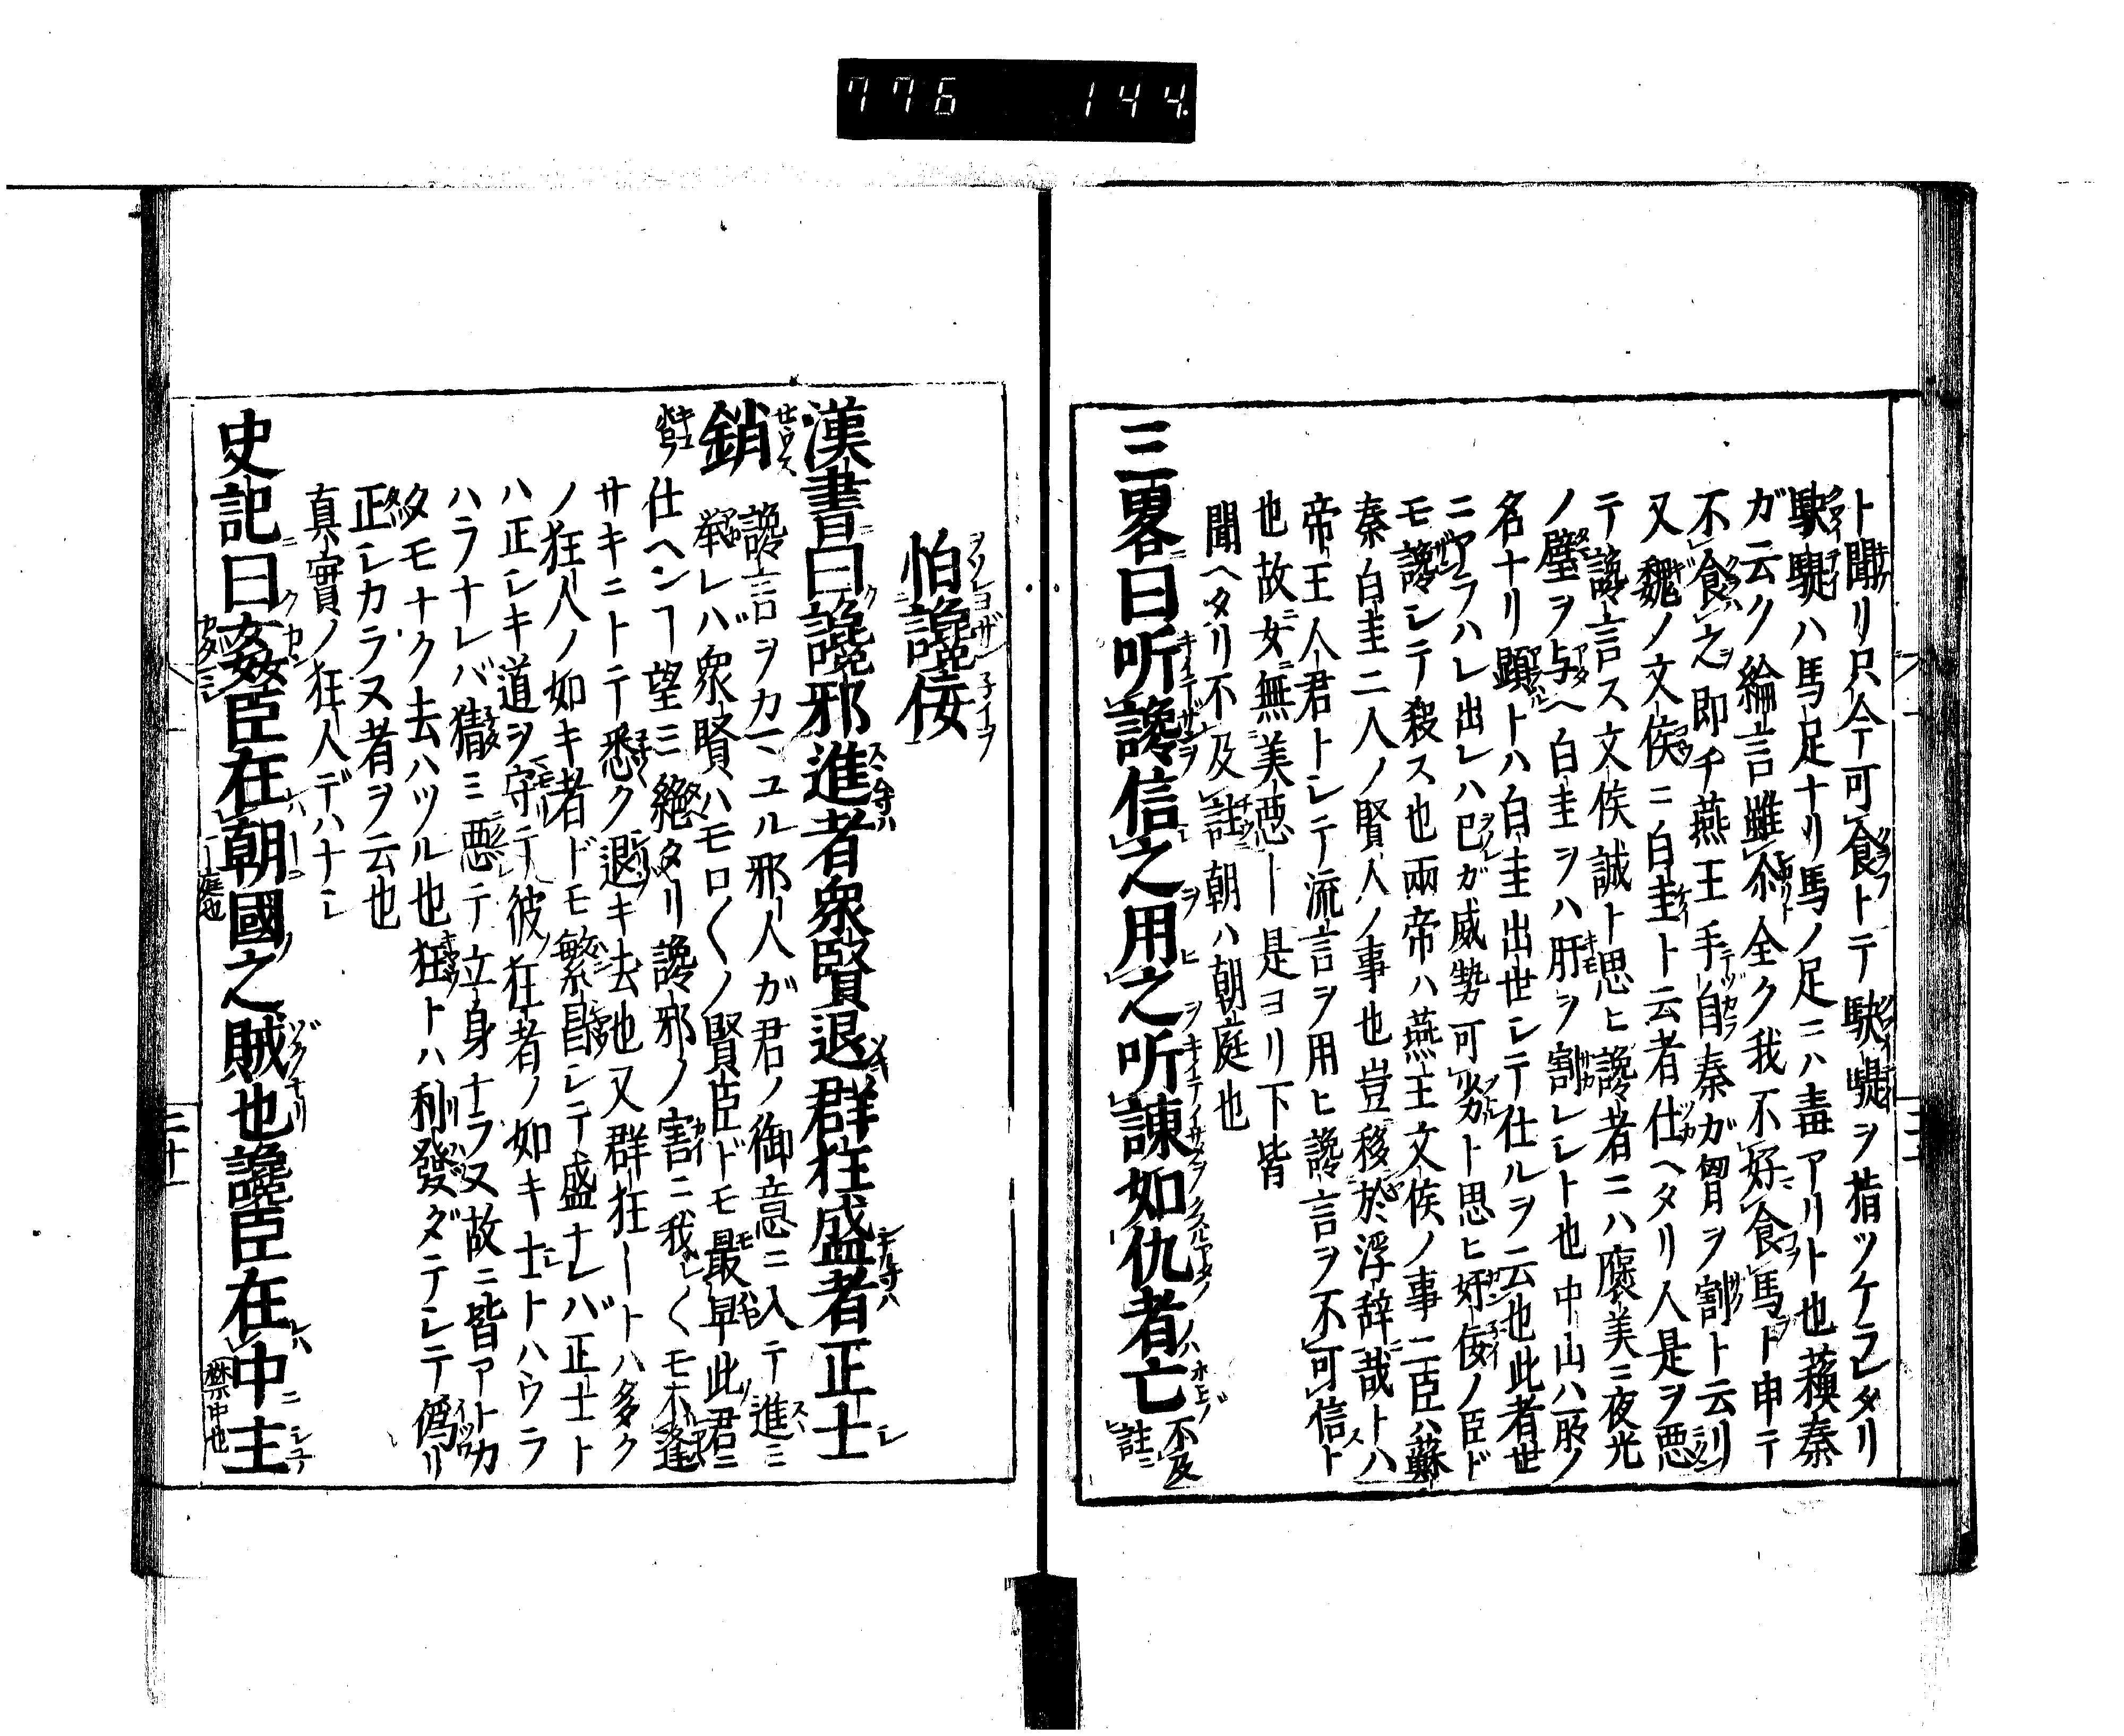 776 144
ト聞リ只今可食トテ駃騠ヲ指ツケラレタリ
駃騠ハ馬足ナリ馬ノ足ニハ毒アリト也蘓秦
ガ云ク綸言雖尒全ク我不好食馬ト申テ
不食之即チ燕王手自秦ガ胷ヲ割ト云リ
又魏ノ文侯ニ白圭ト云者仕ヘタリ人是ヲ悪
テ讒言ス文侯誠ト思ヒ讒者ニハ褒美ニ夜光
ノ璧ヲ与ヘ白圭ヲハ肝ヲ割レシト也中山ハ所ノ
名ナリ顕トハ白圭出世シテ仕ルヲ云也此者世
ニアラハレ出レハ己ガ威勢可劣ト思ヒ奸佞ノ臣ド
モ讒シテ殺ス也兩帝ハ燕王文侯ノ事二臣ハ蘇
秦白圭二人ノ賢人ノ事也豈移於浮辞哉トハ
帝王人君トシテ流言ヲ用ヒ讒言ヲ不可信ト
也故女無美悪ー是ヨリ下皆
聞ヘタリ不及註朝ハ朝庭也
三畧曰听讒信之用之听諫如仇者亡不及註
怕讒佞
漢書曰讒邪進者衆賢退群枉盛者正士
銷 讒言ヲカマユル邪人ガ君ノ御意ニ入テ進ミ
挙レバ衆賢ハモロ〱ノ賢臣ドモ最早此君ニ
仕ヘンヿ望ミ絶タリ讒邪ノ害ニ我レ〱モ不逢
サキニトテ悉ク退キ去也又群狂ートハ多ク
ノ狂人ノ如キ者ドモ繁昌シテ盛ナレバ正士ト
ハ正シキ道ヲ守テ彼狂者ノ如キ士トハウラ
ハラナレバ嶽ミ悪テ立身ナラヌ故ニ皆アトカ
タモナク去ハツル也狂トハ利發ダテシテ偽リ
正シカラヌ者ヲ云也
真實ノ狂人デハナシ
史記曰姦臣在朝國之賊也讒臣在中主
二十一